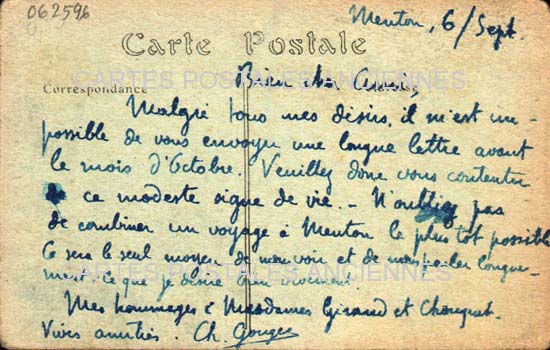 062596
Menton, 6/Sept.
Carte Postale
CARTES POSTALES ANCIENNES
Bien cher Ami,
Correspondance
Malgré tous mes désirs, il m'est im-
possible de vous envoyer une longue lettre avant
le mois d'Octobre. Veuillez donc vous contenter
de ce modeste signe de vie. - N'oubliez pas
de combiner un voyage à Menton le plus tôt possible
Ce sera le seul moyen de me voir et de me parler longue-
ment, ce que je désire bien vivement.
CARTES POSTALES ANCIENNES
Mes hommages à Mesdames Giraud et Chouquet.
Vives amitiés. Ch.